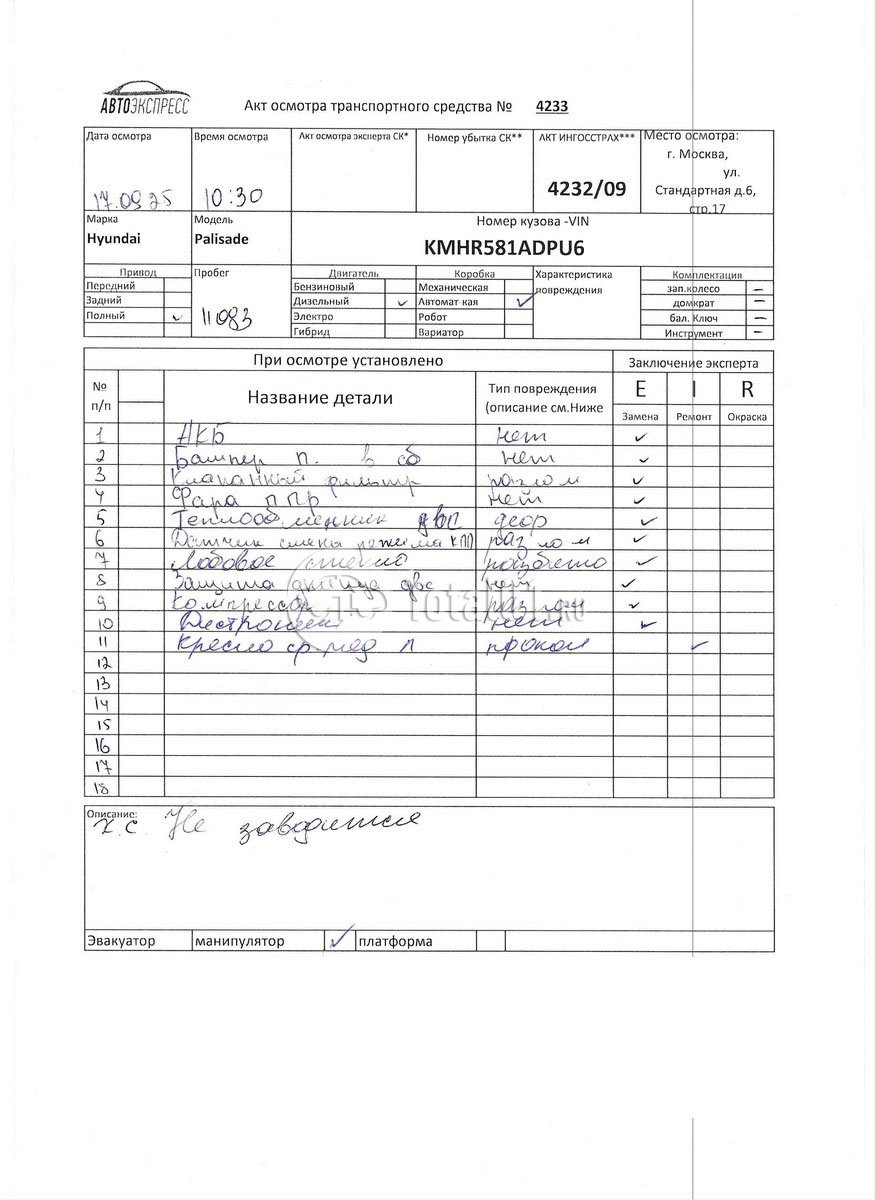 АВТОЭКСПРЕСС
Акт осмотра транспортного средства № 4233
Дата осмотра Время осмотра Акт осмотра эксперта СК* Номер убытка СК** АКТ ИНГОССТРАХ*** Место осмотра:
г. Москва,
ул.
17.09.25 10:30 4232/09 Стандартная д.6,
стр.17
Марка Модель Номер кузова -VIN
Hyundai Palisade KMHR581ADPU6
Привод Пробег Двигатель Коробка Характеристика Комплектация
Передний Бензиновый Механическая повреждения зап.колесо –
Задний Дизельный ✓ Автомат-кая ✓ домкрат –
Полный ✓ 11083 Электро Робот бал. Ключ –
Гибрид Вариатор Инструмент –
При осмотре установлено Заключение эксперта
№ п/п Название детали Тип повреждения (описание см.Ниже E I R
Замена Ремонт Окраска
1 АКБ нет ✓
2 Бампер п. в сб нет ✓
3 фильтр разлом ✓
4 Фара П Пр нет ✓
5 Теплообменник ДВС деор ✓
6 Датчик смены режима КПП разлом ✓
7 Лобовое стекло разбито ✓
8 Защита днища двс нет ✓
9 Компрессор разлом ✓
10 Дистроник нет ✓
11 Кресло ср. ряд Л прокол ✓
12
13
14
15
16
17
18
Описание:
х.с. Не заводится
Эвакуатор манипулятор ✓ платформа
Total01.ru